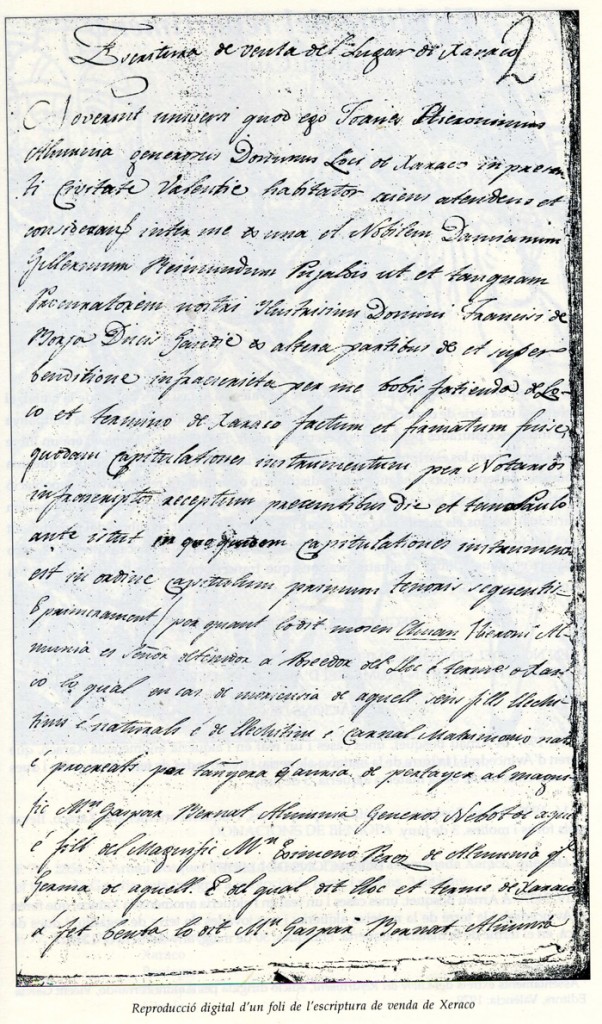 Escritura de venta del Lugar de Xaraco
2
Noverint universi quod ego Joanes Hieronimus
Almunia generosus Dominus Loci de Xaraco in presen-
ti Civitate Valentie habitator sciens atendens et
considerans inter me ex una et Nobilem Damianum
Gillermum Reimundum Pujalsis ut et tanquam
Procuratorem nostri Ilustrisimi Domini Francisi de
Borja Ducis Gandie ex altera partibus de et super
benditione infrascripta per me bobis fatienda de Lo-
co et termino de Xaraco factum et firmatum fuise,
quodam capitulationes instrumentum per Notarios
infrascriptos receptum presentibus die et
ante in quo quidem capitulationes instrumen
est in ordine capitulum primum tenoris sequentis
E primerament/ per quant lo dit mosen Chuan Hieroni Al-
munia es Señor obtenidor á Poseedor del Lloc é terme o Xara-
co lo qual en cas de morencia de aquell sens fills llechi-
tims é naturals é de llechitim e carnal Matrimoni nats
é procreats de pertayer al magni-
fic Mn Gaspar Bernat Almunia Generos Nebot de aque
é fill del Magnific Mn Eximeno Perez de Almunia q.
Germa de aquell. E del qual dit lloc et terme de Xaraco
á fet benta lo dit Mn Gaspar Bernat Almunia
Reproducció digital d'un foli de l'escriptura de venda de Xeraco